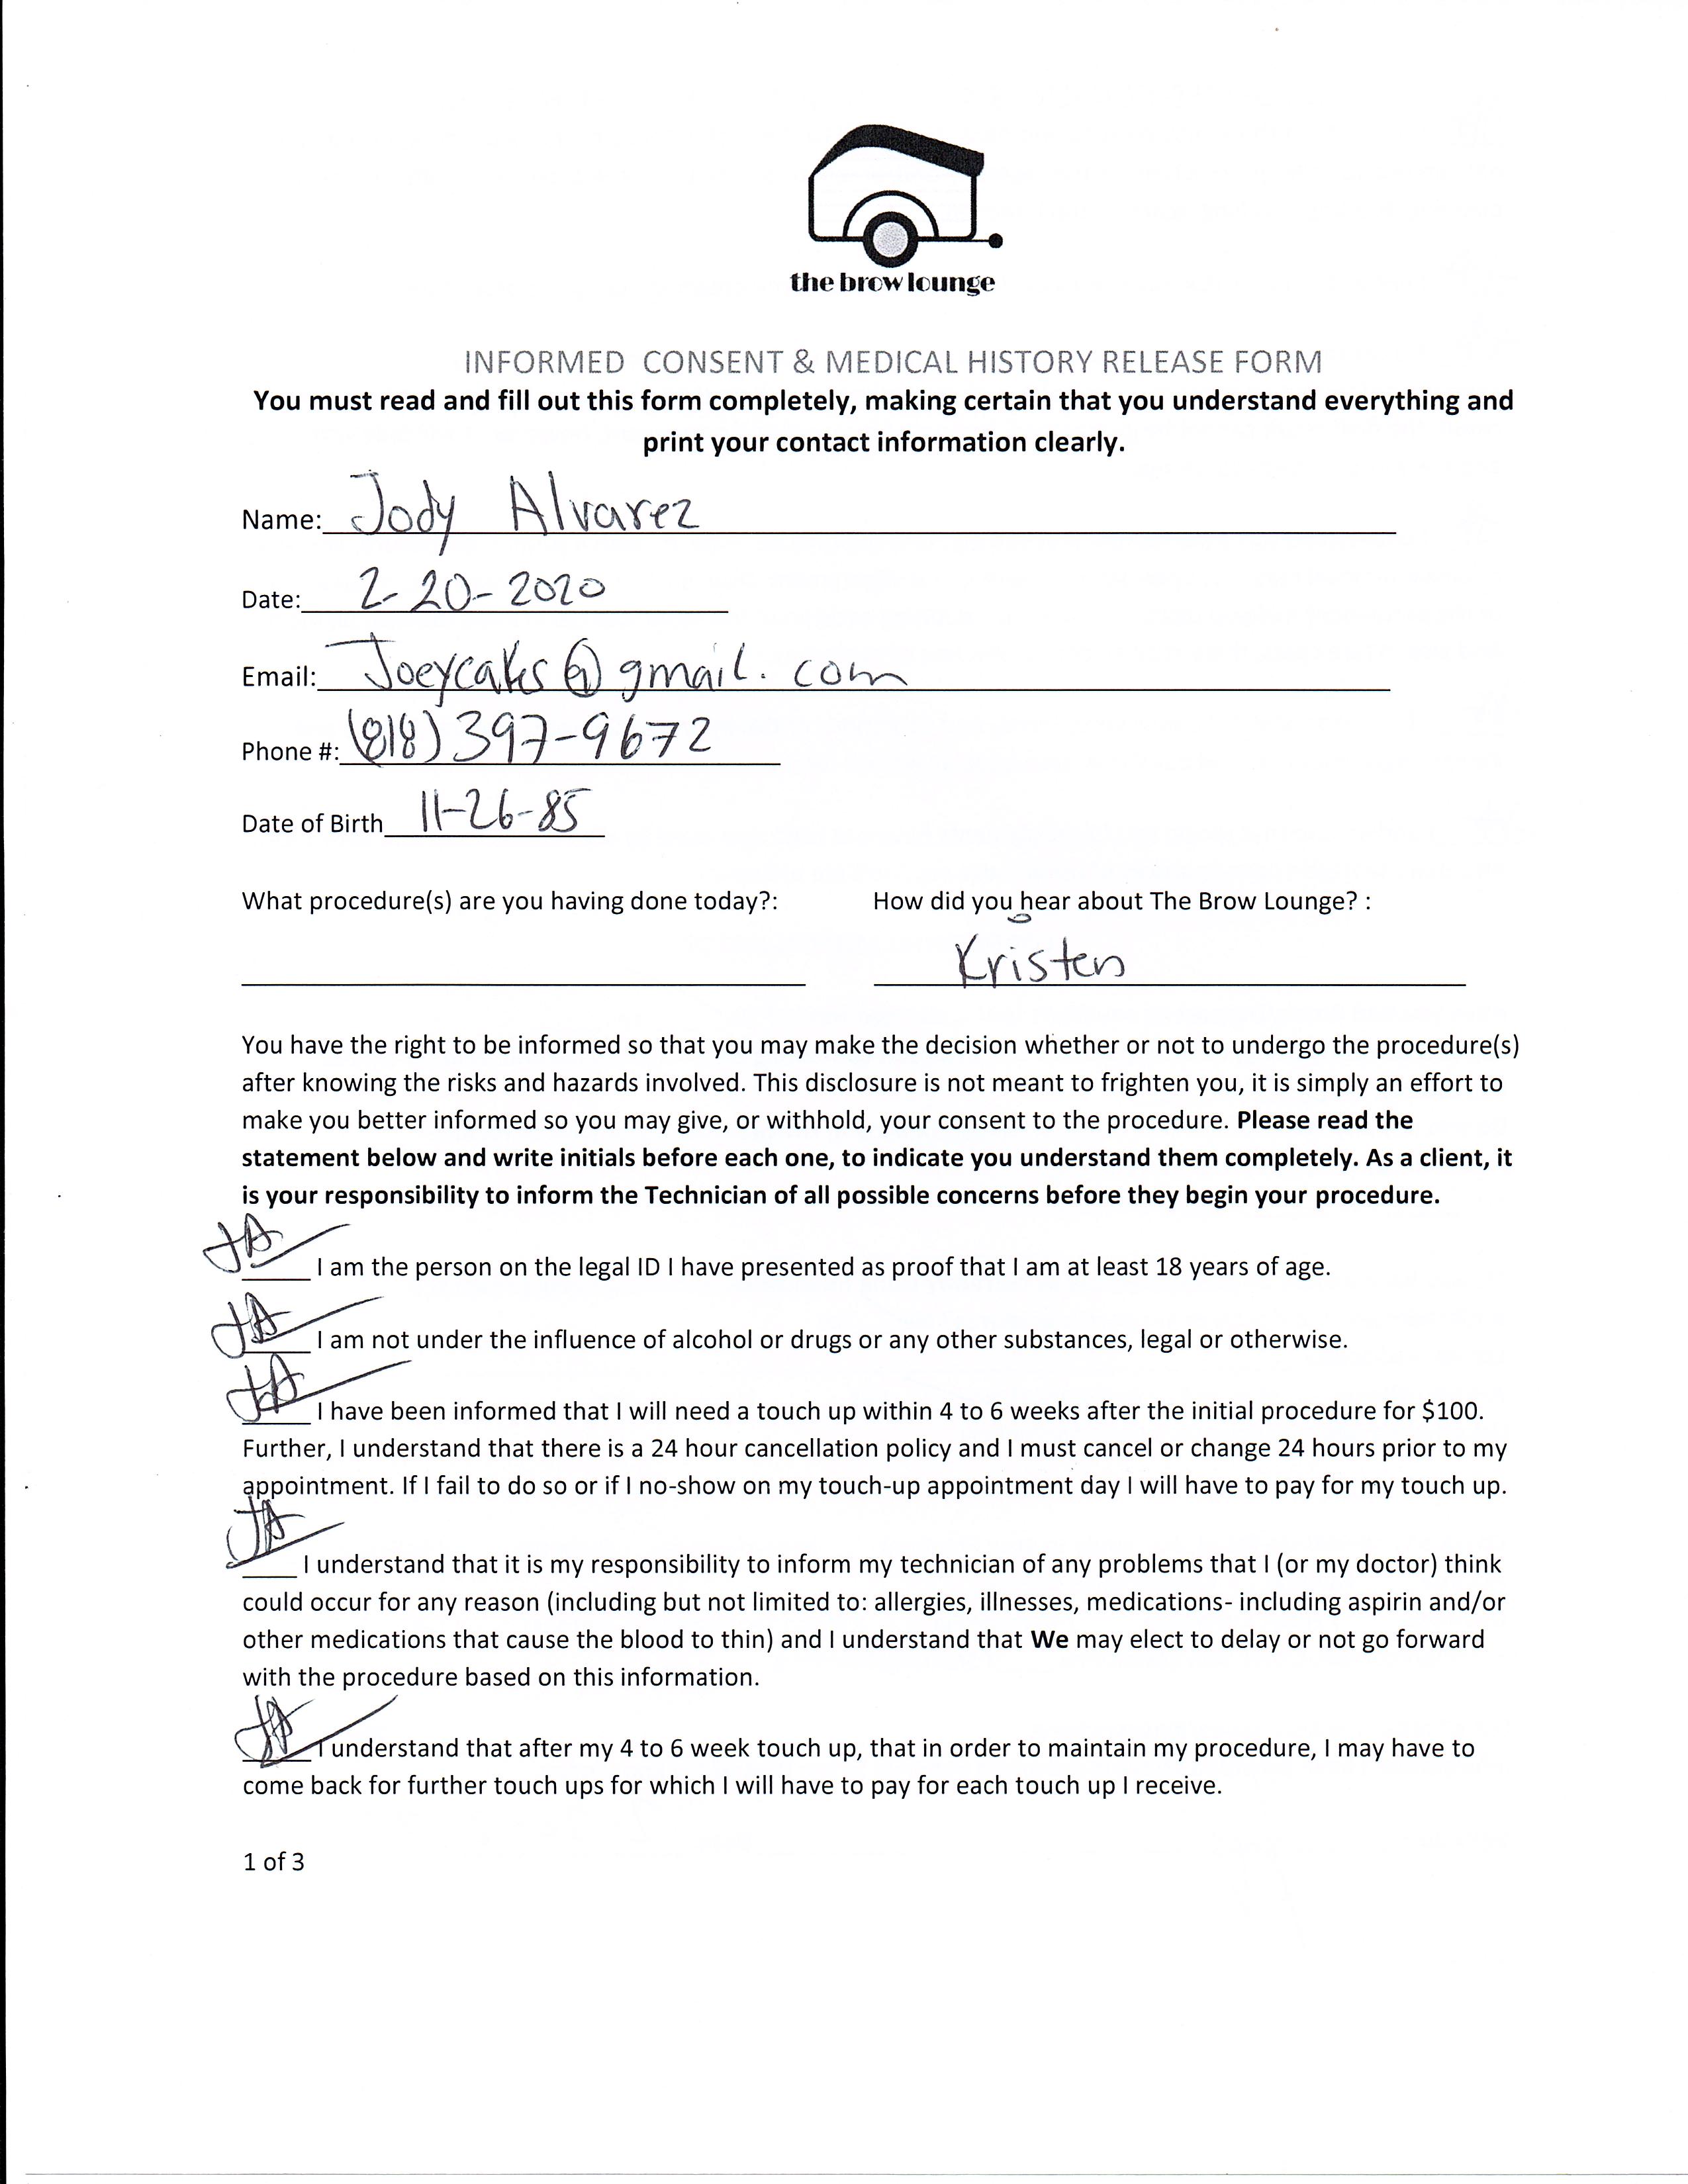 the brow lounge
INFORMED CONSENT & MEDICAL HISTORY RELEASE FORM
You must read and fill out this form completely, making certain that you understand everything and
print your contact information clearly.
Name: Jody Alvarez
Date: 2-20-2020
Email: Joeycakes@gmail.com
Phone #: (818) 397-9672
Date of Birth 11-26-85
What procedure(s) are you having done today?: How did you hear about The Brow Lounge? :
Kristen
You have the right to be informed so that you may make the decision whether or not to undergo the procedure(s)
after knowing the risks and hazards involved. This disclosure is not meant to frighten you, it is simply an effort to
make you better informed so you may give, or withhold, your consent to the procedure. Please read the
statement below and write initials before each one, to indicate you understand them completely. As a client, it
is your responsibility to inform the Technician of all possible concerns before they begin your procedure.
JA I am the person on the legal ID I have presented as proof that I am at least 18 years of age.
JA I am not under the influence of alcohol or drugs or any other substances, legal or otherwise.
JA I have been informed that I will need a touch up within 4 to 6 weeks after the initial procedure for $100.
Further, I understand that there is a 24 hour cancellation policy and I must cancel or change 24 hours prior to my
appointment. If I fail to do so or if I no-show on my touch-up appointment day I will have to pay for my touch up.
JA I understand that it is my responsibility to inform my technician of any problems that I (or my doctor) think
could occur for any reason (including but not limited to: allergies, illnesses, medications- including aspirin and/or
other medications that cause the blood to thin) and I understand that We may elect to delay or not go forward
with the procedure based on this information.
JA I understand that after my 4 to 6 week touch up, that in order to maintain my procedure, I may have to
come back for further touch ups for which I will have to pay for each touch up I receive.
1 of 3